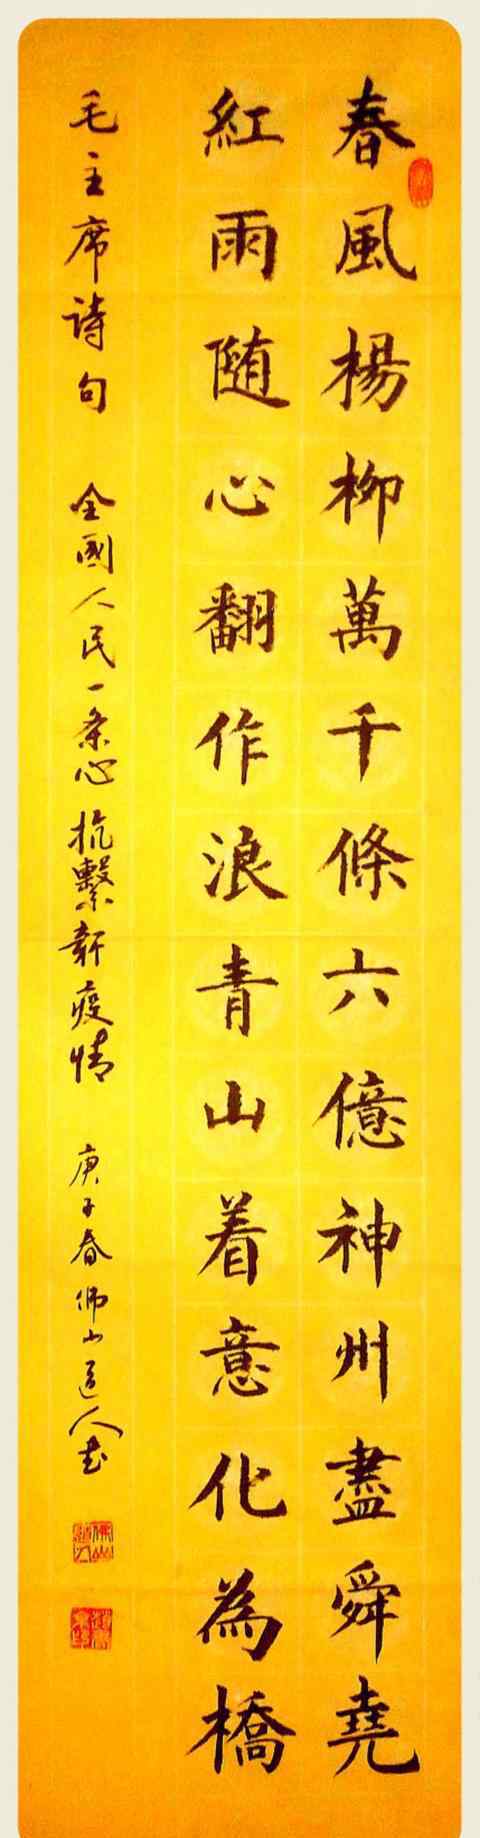 春風楊柳萬千條六億神州盡舜堯
紅雨随心翻作浪青山着意化為橋
毛主席詩句 全國人民一条心抗擊新疫情 庚子春佛山道人书
佛山道人